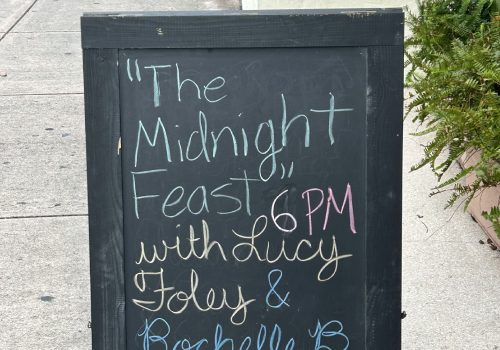 "The
Midnight
Feast"
6PM
with Lucy
Foley &
Rochelle B